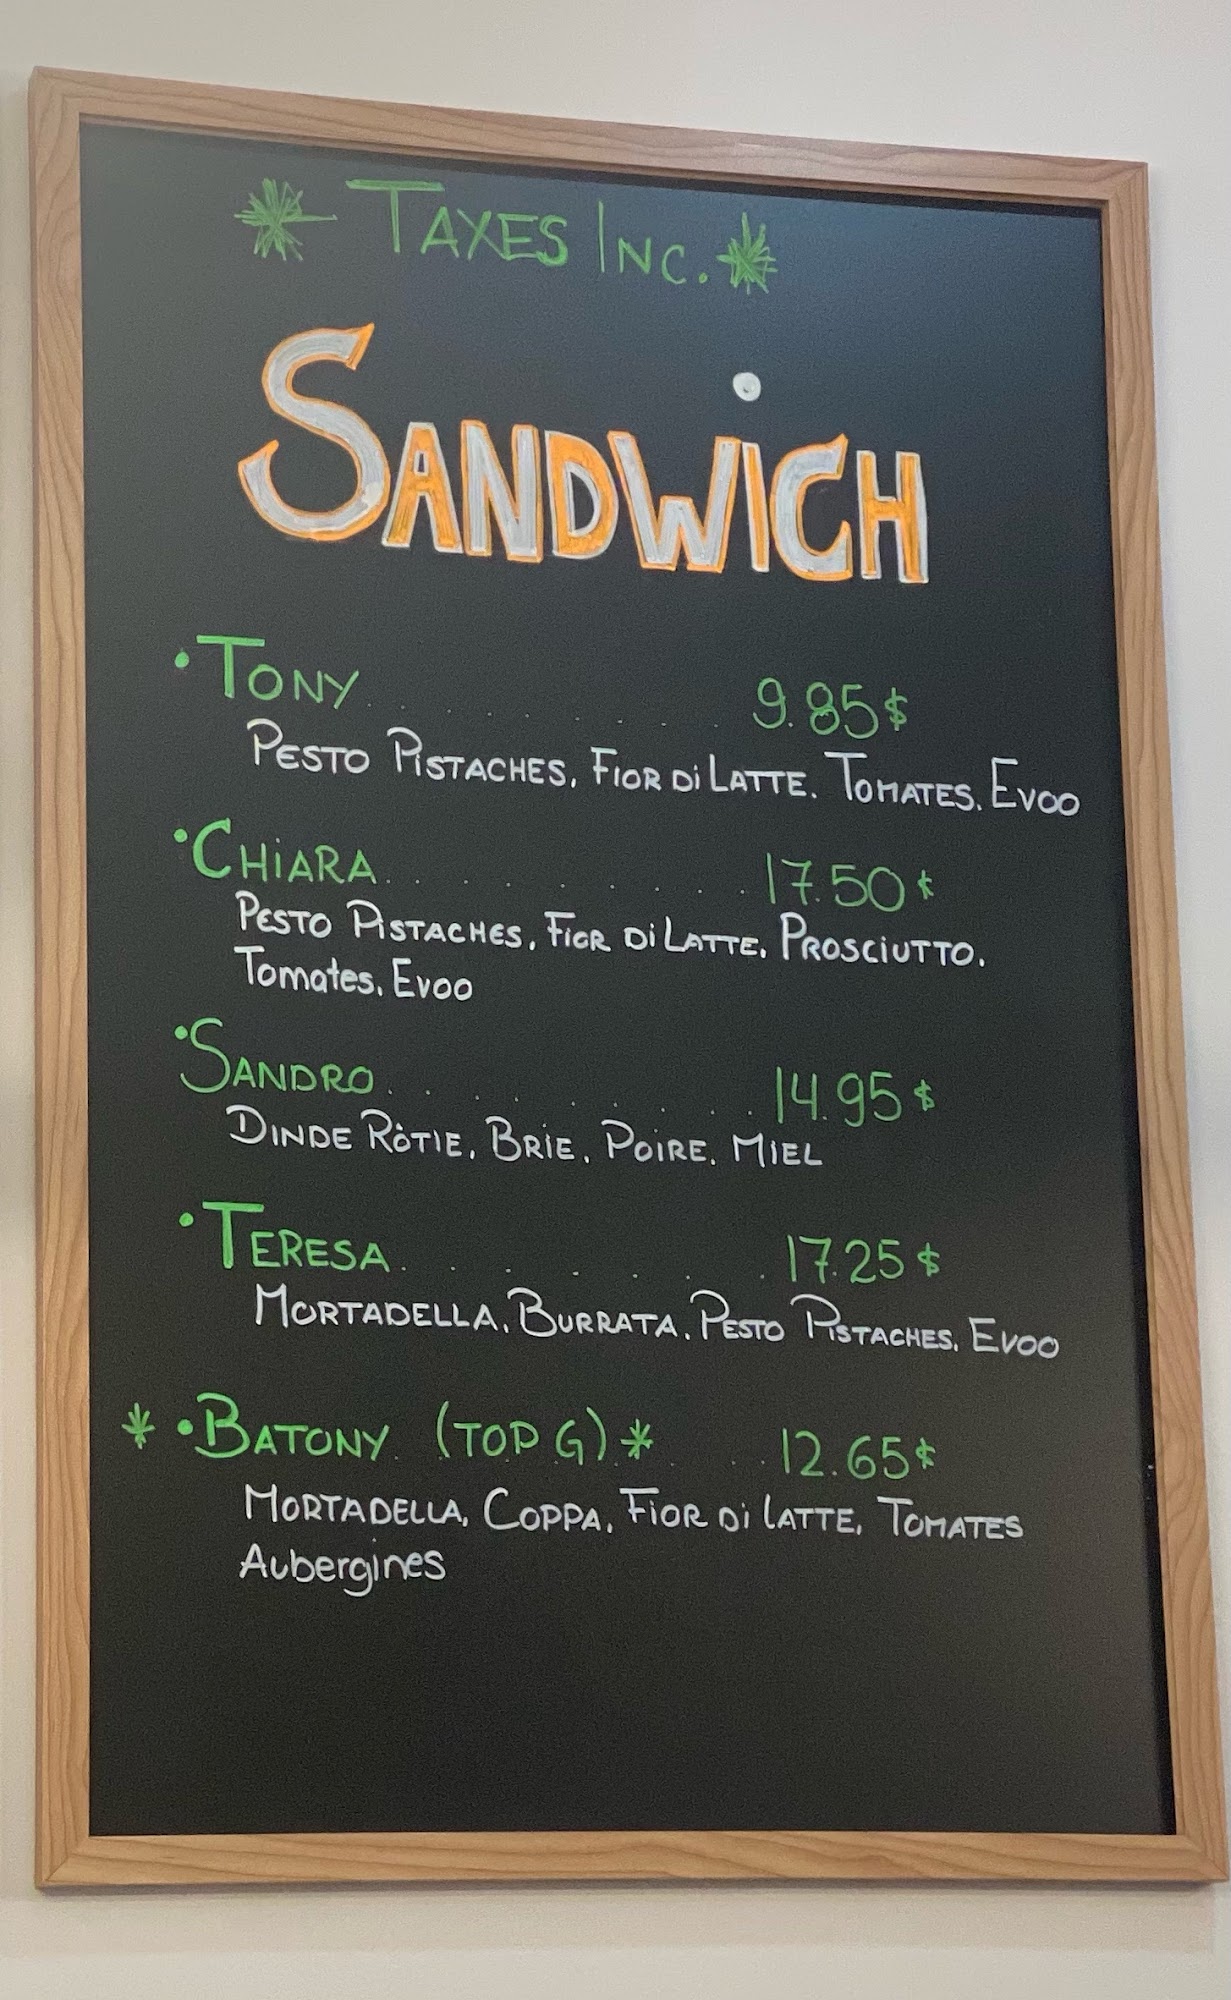 * TAXES INC. *
SANDWICH
• TONY . . . . . . . . 9.85$
PESTO PISTACHES, FIOR Di LATTE. TOMATES. EVOO
• CHiARA . . . . . . . . 17.50$
PESTO PISTACHES, FIOR Di LATTE. PROSCiUTTO.
Tomates. Evoo
• SANDRO . . . . . . . . 14.95$
DINDE RÔTIE. BRiE. POIRE. MIEL
• TERESA . . . . . . . 17.25$
MORTADELLA. BURRATA. PESTO PISTACHES. EVOO
* • BATONY (TOP G) * . . . 12.65$
MORTADELLA, COPPA, FIOR Di LATTE, TOMATES
Aubergines